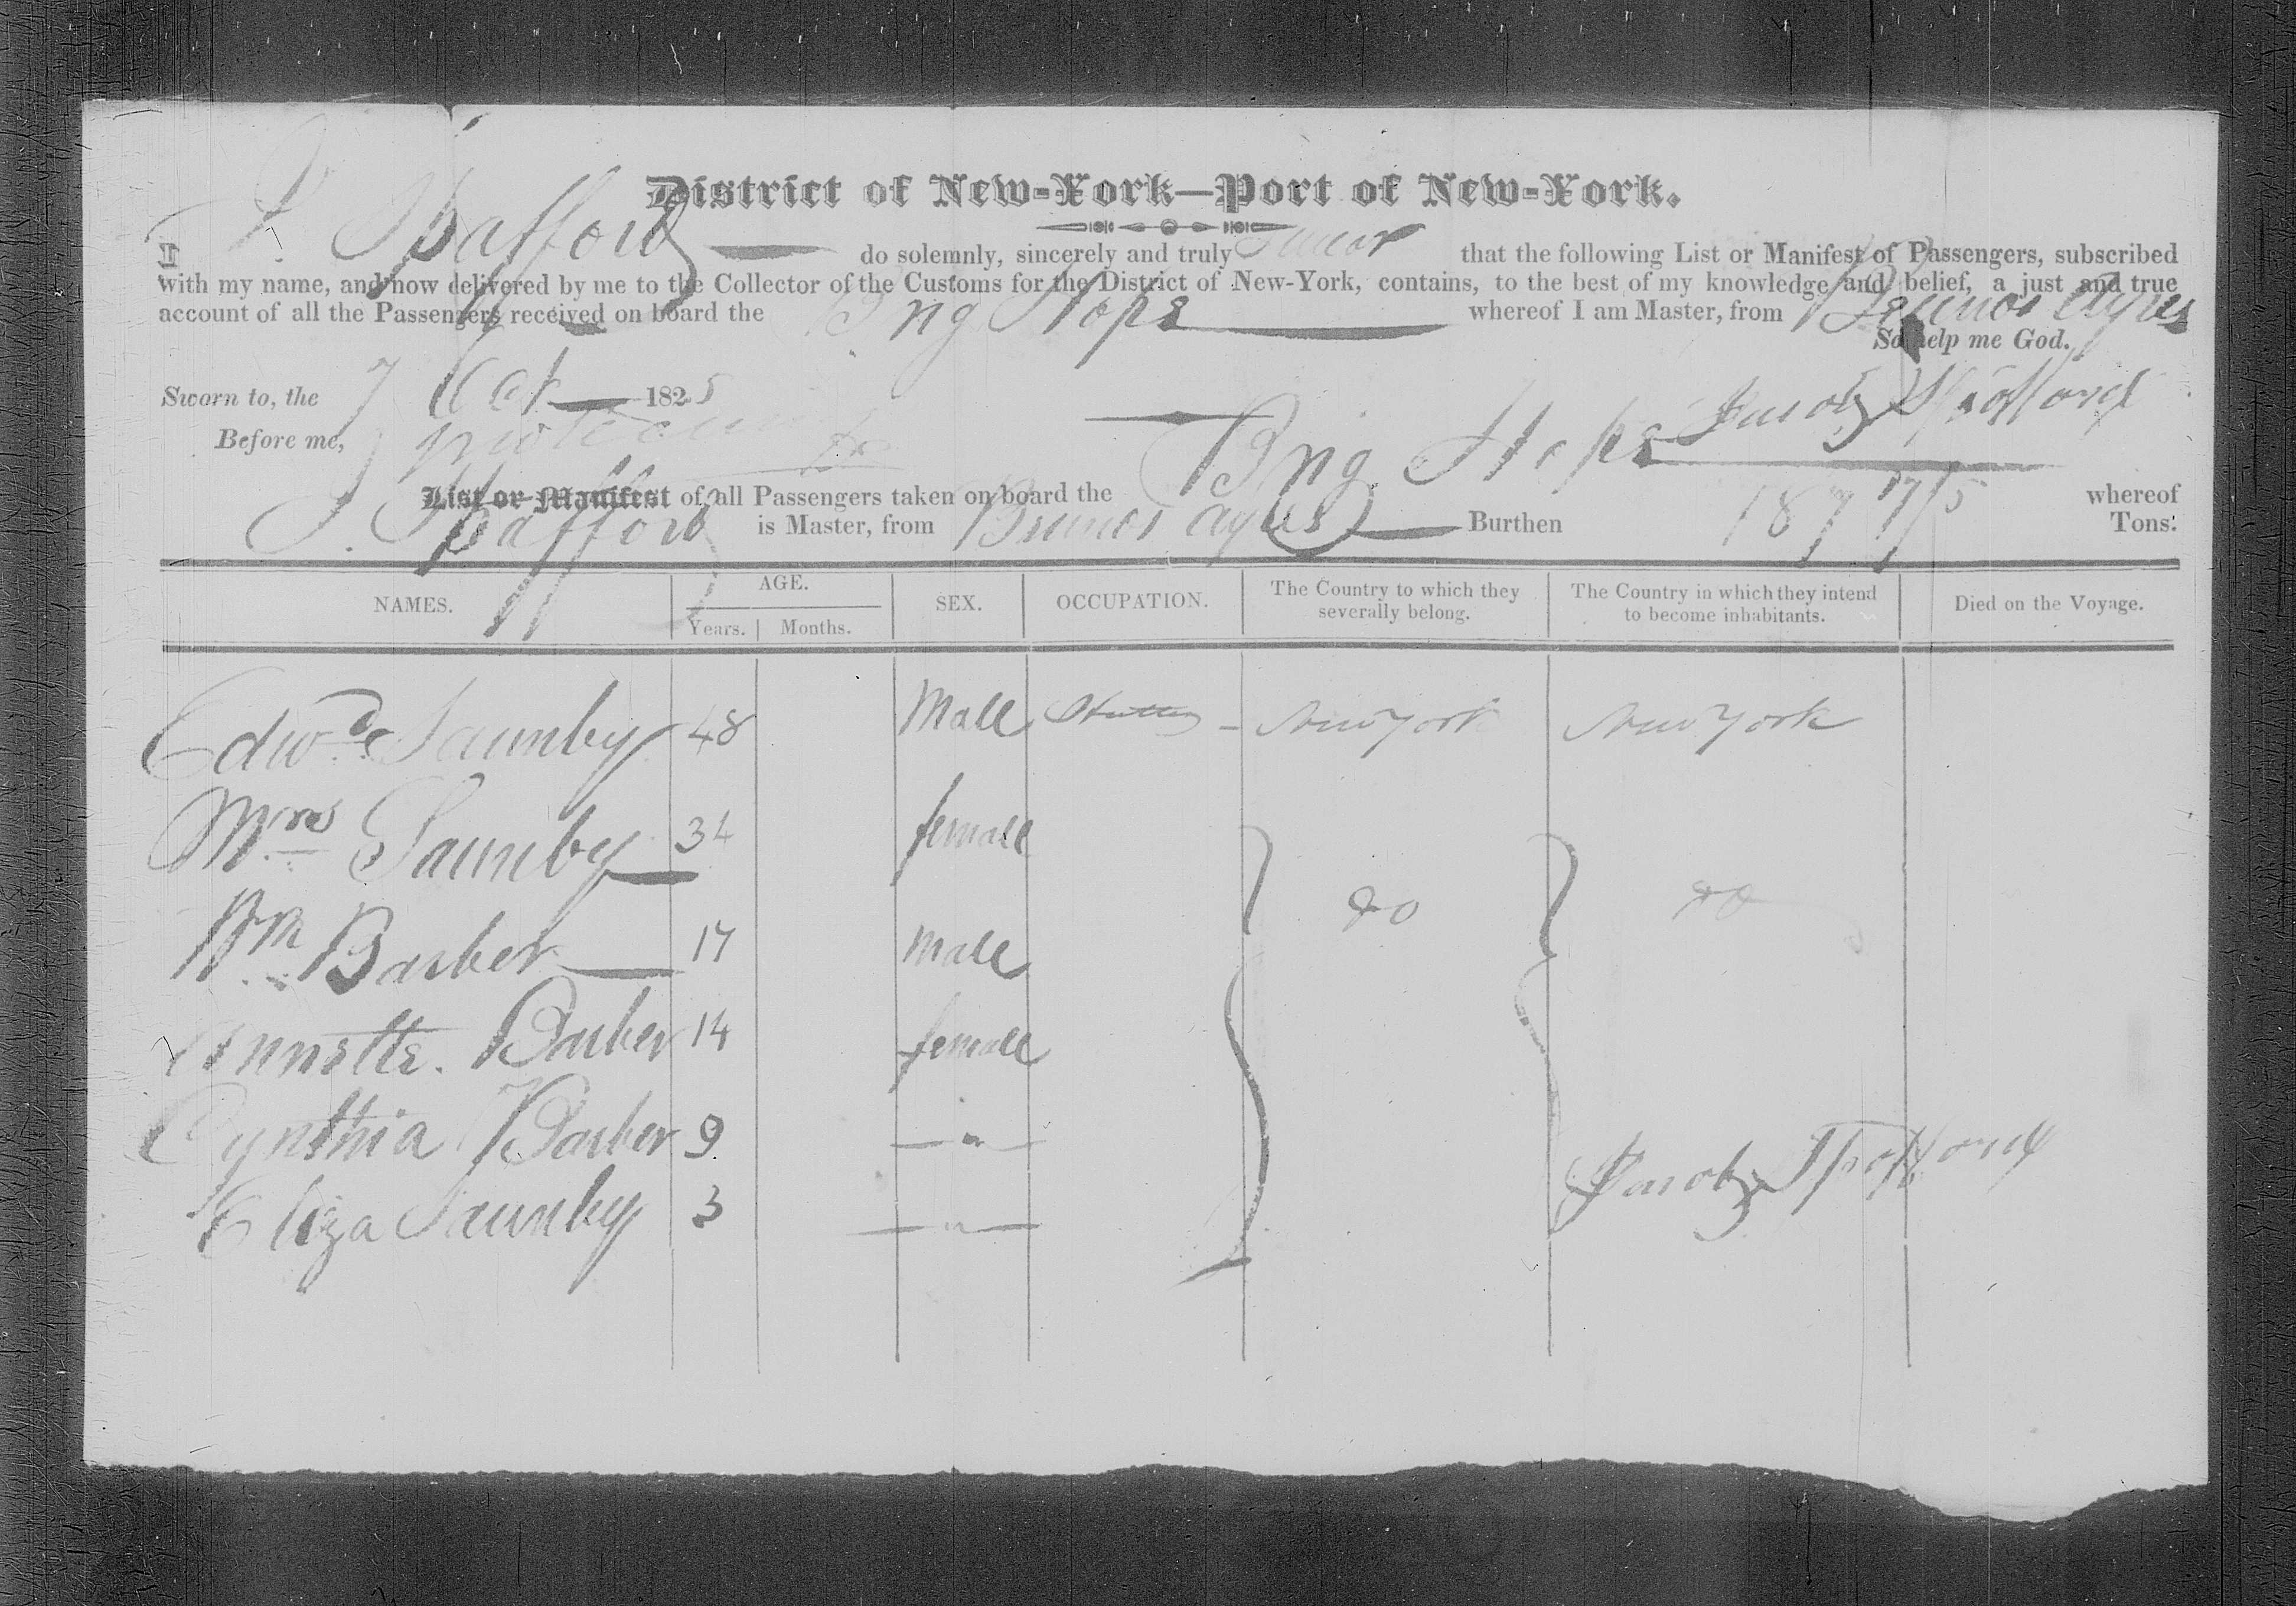 District of New-York—Port of New-York.
I J Spafford do solemnly, sincerely and truly swear that the following List or Manifest of Passengers, subscribed
with my name, and now delivered by me to the Collector of the Customs for the District of New-York, contains, to the best of my knowledge and belief, a just and true
account of all the Passengers received on board the Brig Hope whereof I am Master, from Buenos Ayres
So help me God.
Sworn to, the 7 Oct 1825
Jacob Spofford
Before me,
List or Manifest of all Passengers taken on board the Brig Hope whereof
J. Spafford is Master, from Buenos Ayres Burthen 187 17/5 Tons.
NAMES. AGE. Years. Months. SEX. OCCUPATION. The Country to which they severally belong. The Country in which they intend to become inhabitants. Died on the Voyage.
Edwd Saunby 48 Male New York New York
Mrs Saunby 34 female
Wm Barber 17 Male do do
Annette. Barber 14 female
Cynthia Barber 9 "
Eliza Saunby 3 "
Jacob Spofford